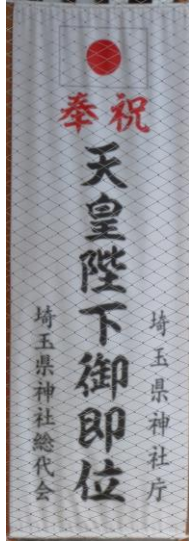 奉祝
天皇陛下御即位
埼玉県神社庁
埼玉県神社総代会